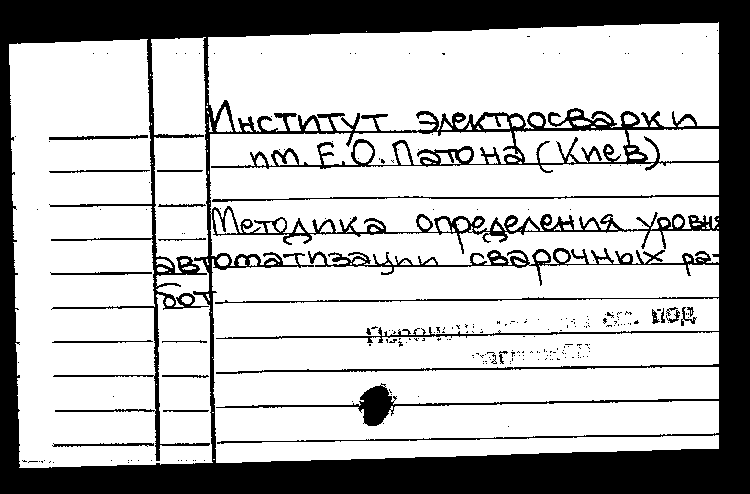 Институт электросварки
им. Е.О. Патона (Киев).
Методика определения уровня
автоматизации сварочных ра-
бот.
см. под
заглавием